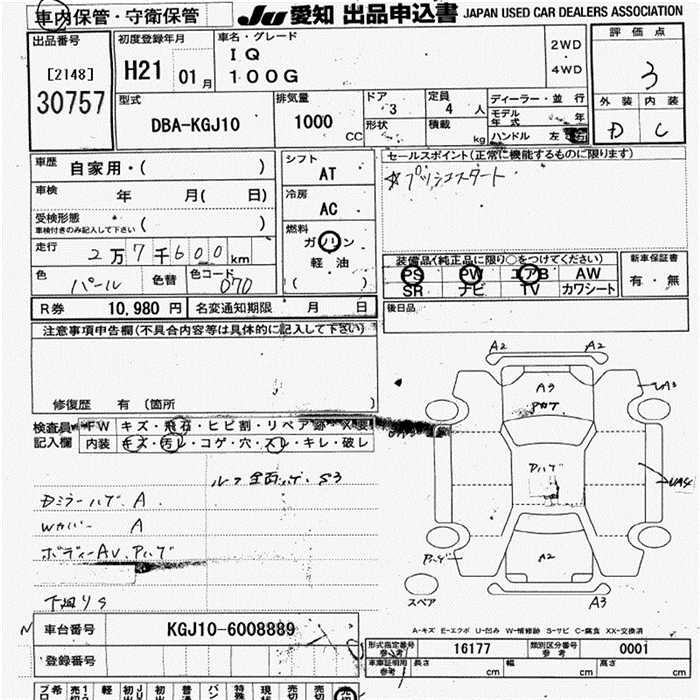 車内保管・守衛保管
JU 愛知 出品申込書 JAPAN USED CAR DEALERS ASSOCIATION
出品番号
[2148]
30757
初度登録年月
H21 01月
車名・グレード
IQ
100G
2WD
4WD
評価点
3
外装 内装
D C
型式
DBA-KGJ10
排気量
1000
CC
ドア
3
定員
4 人
形状
積載
kg
ディーラー・並行
モデル年式 年
ハンドル 左
車歴 自家用・( )
車検 年 月( 日)
受検形態
車検付きのみ記入して下さい ( )
走行 2万7千600km
色 パール 色替 色コード 070
シフト
AT
冷房
AC
燃料
ガソリン
軽油
( )
セールスポイント(正常に機能するものに限ります)
☆プッシュスタート
装備品(純正品に限り○をつけてください)
PS PW エアB AW
SR ナビ TV カワシート
新車保証書
有・無
R券 10,980円 名変通知期限 月 日
後日品
注意事項申告欄(不具合内容等は具体的に記入して下さい)
修復歴 有 (箇所 )
検査員記入欄
FW キズ・飛石・ヒビ割・リペア跡・X要
内装 キズ・汚レ・コゲ・穴・スレ・キレ・破レ
ルーフ全面ハゲ、S3
Dミラーハゲ A
Wカバー A
ボディーAU、Pハゲ
下回りS
A2 A2
A3
UA3
Pハゲ
UA4
A2
Pハゲ
A3
スペア
A-キズ E-エクボ U-凹み W-補修跡 S-サビ C-腐食 XX-交換済
車台番号 KGJ10-6008889
登録番号
形式指定番号 参考 16177
類別区分番号 参考 0001
車庫証明用 参考 長さ cm 幅 cm 高さ cm